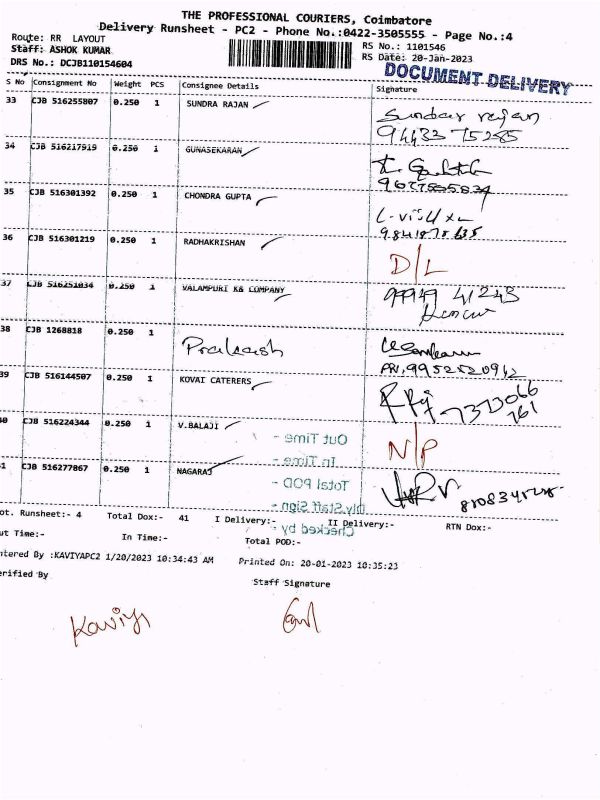 THE PROFESSIONAL COURIERS, Coimbatore
Delivery Runsheet - PC2 - Phone No.:0422-3505555 - Page No.:4
Route: RR LAYOUT
RS No.: 1101546
Staff: ASHOK KUMAR
RS Date: 20-Jan-2023
DRS No.: DCJB110154604
DOCUMENT DELIVERY
S No Consignment No Weight PCS Consignee Details Signature
33 CJB 516255807 0.250 1 SUNDRA RAJAN Sundar rajan
94433 75285
34 CJB 516217919 0.250 1 GUNASEKARAN
35 CJB 516301392 0.250 1 CHONDRA GUPTA
36 CJB 516301219 0.250 1 RADHAKRISHAN D/L
37 CJB 516251034 0.250 1 VALAMPURI K& COMPANY 99949 41243
38 CJB 1268818 0.250 1 Prakash
9952520912
39 CJB 516144507 0.250 1 KOVAI CATERERS 7373066
761
40 CJB 516224344 0.250 1 V.BALAJI N/P
41 CJB 516277867 0.250 1 NAGARAJ
Out Time -
In Time -
Total POD -
Dly.Staff Sign -
Checked by -
Tot. Runsheet:- 4 Total Dox:- 41 I Delivery:- II Delivery:- RTN Dox:-
Out Time:- In Time:- Total POD:-
Entered By :KAVIYAPC2 1/20/2023 10:34:43 AM Printed On: 20-01-2023 10:35:23
Verified By Staff Signature
Kaviya